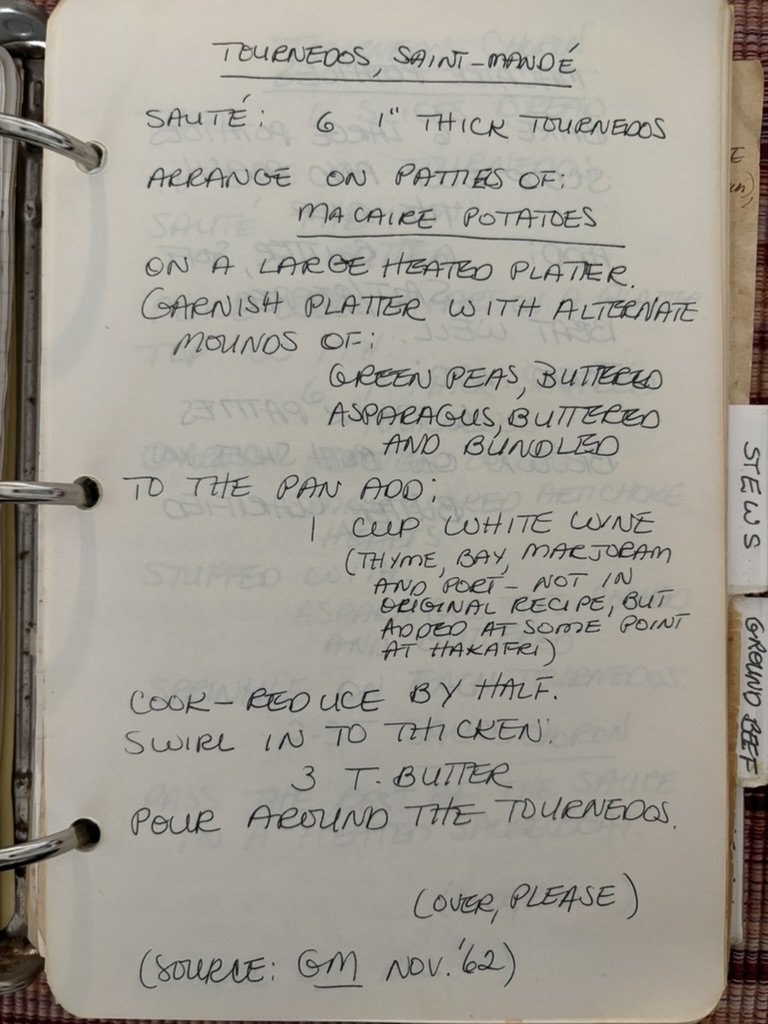 TOURNEDOS, SAINT-MANDÉ
SAUTÉ: 6 1" THICK TOURNEDOS
ARRANGE ON PATTIES OF:
MACAIRE POTATOES
ON A LARGE HEATED PLATTER.
GARNISH PLATTER WITH ALTERNATE
MOUNDS OF:
GREEN PEAS, BUTTERED
ASPARAGUS, BUTTERED
AND BUNDLED
TO THE PAN ADD:
1 CUP WHITE WINE
(THYME, BAY, MARJORAM
AND PORT - NOT IN
ORIGINAL RECIPE, BUT
ADDED AT SOME POINT
AT HAKAFRI)
COOK - REDUCE BY HALF.
SWIRL IN TO THICKEN:
3 T. BUTTER
POUR AROUND THE TOURNEDOS.
(OVER, PLEASE)
(SOURCE: GM NOV. '62)
STEWS
GROUND BEEF